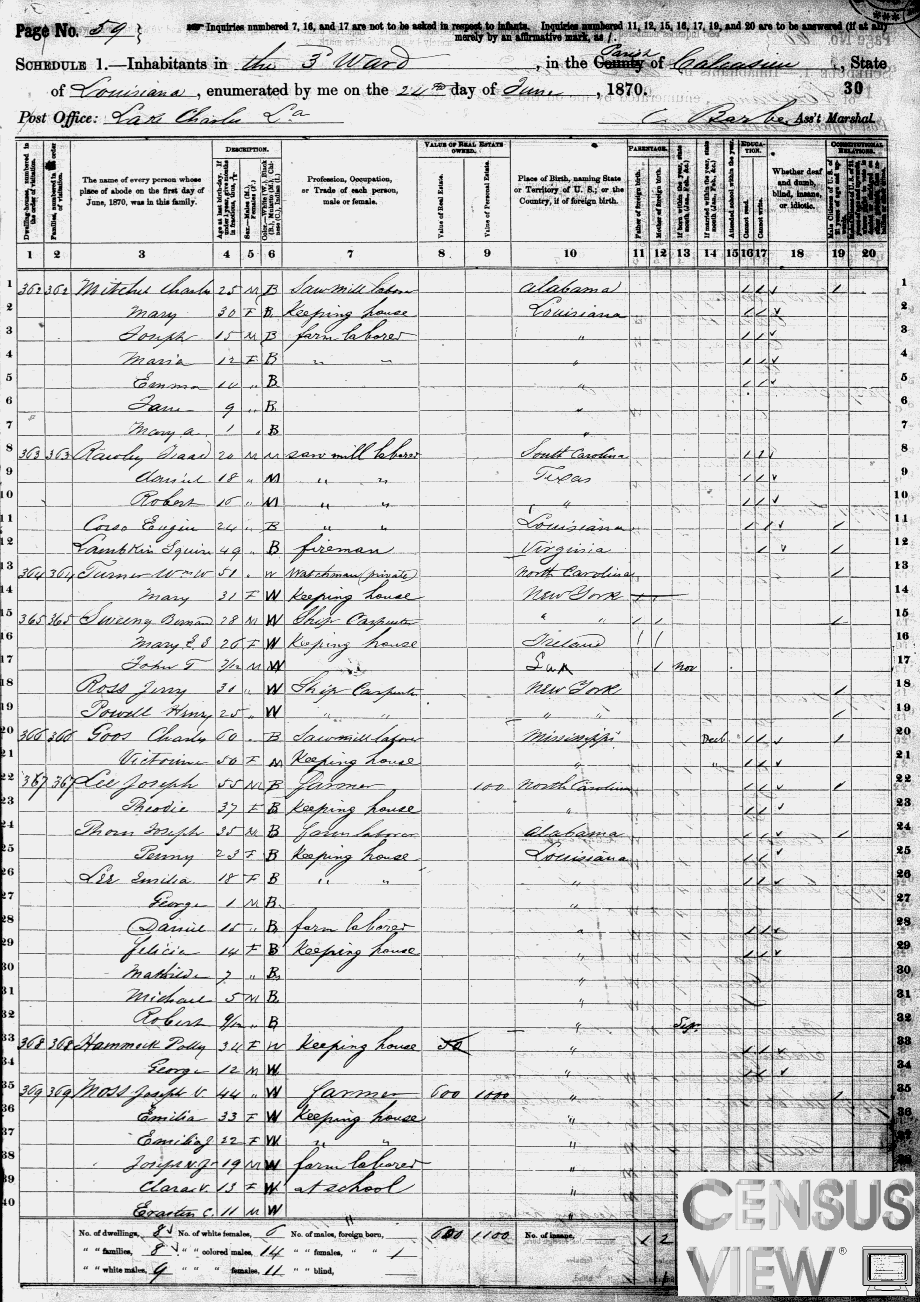 Page No. 59
Inquiries numbered 7, 16, and 17 are not to be asked in respect to infants. Inquiries numbered 11, 12, 15, 16, 17, 19, and 20 are to be answered (if at all) merely by an affirmative mark, as /.
SCHEDULE 1.—Inhabitants in the 3 Ward, in the County Parish of Calcasieu, State
of Louisiana, enumerated by me on the 24th day of June, 1870. 30
Post Office: Lake Charles La C Barbe, Ass't Marshal.
DESCRIPTION. VALUE OF REAL ESTATE OWNED. PARENTAGE. EDUCATION. CONSTITUTIONAL RELATIONS.
Dwelling-houses, numbered in the order of visitation.
Families, numbered in the order of visitation.
The name of every person whose place of abode on the first day of June, 1870, was in this family.
Age at last birth-day.
Sex.—Males (M.), Females (F.)
Profession, Occupation, or Trade of each person, male or female.
Value of Real Estate.
Value of Personal Estate.
Place of Birth, naming State or Territory of U. S.; or the Country, if of foreign birth.
Father of foreign birth.
Mother of foreign birth.
Attended school within the year.
Cannot read.
Cannot write.
Whether deaf and dumb, blind, insane, or idiotic.
1 2 3 4 5 6 7 8 9 10 11 12 13 14 15 16 17 18 19 20
1 362 362 Mitchel Charles 25 M B Saw mill labore Alabama / / / 1
2 Mary 30 F B Keeping house Louisiana / / 2
3 Joseph 15 M B farm laborer " / / 3
4 Maria 12 F B " " " / / 4
5 Emma 10 " B " / / 5
6 Jane 9 " B " 6
7 Mary A 1 " B " 7
8 363 363 Rawley Isaac 20 M M saw mill laborer South Carolina / / 8
9 Daniel 18 " M " " Texas / / 9
10 Robert 16 " M " " " / / 10
11 Corso Eugin 24 " B " " Louisiana / / / 11
12 Lambkin Squire 49 " B fireman Virginia / / 12
13 364 364 Turner Wm W 51 " W Watchman (private) North Carolina / 13
14 Mary 31 F W Keeping house New York 14
15 365 365 Sweeny Bernard 28 M W Ship Carpenter " " / / / 15
16 Mary E S 26 F W Keeping house Ireland / / 16
17 John T 7/12 M W / Nov 17
18 Ross Jerry 31 " W Ship Carpenter New York / 18
19 Powell Henry 25 " W " " " " / 19
20 366 366 Goos Charles 60 " B Saw mill labore Mississippi / / / 20
21 50 F M Keeping house " " / / 21
22 367 367 Lee Joseph 55 M B farmer 100 North Carolina / / / 22
23 Theodie 37 F B Keeping house " / / 23
24 Thorn Joseph 35 M B farm laborer Alabama / / / 24
25 Penny 23 F B Keeping house Louisiana / / 25
26 Lee Emilia 18 F B " " " / / 26
27 George 1 M B " 27
28 Daniel 15 " B farm laborer " / / 28
29 Felicia 14 F B Keeping house " / / 29
30 Mathilde 7 " B " 30
31 Michael 5 M B " 31
32 Robert 9/12 " B " Sep. 32
33 368 368 Hammock Polly 34 F W Keeping house 50 " / / 33
34 George 12 M W " / / 34
35 369 369 Moss Joseph V. 44 " W farmer 600 1000 " / 35
36 Emilia 33 F W Keeping house " 36
37 Emilia J 22 F W " " "
38 Joseph N. Jr 19 M W farm laborer "
39 Clara V. 13 F W at school "
40 Erasten C. 11 M W "
No. of dwellings, 8 No. of white females, 6 No. of males, foreign born, 600 1100 No. of insane, 1 2
" " families, 8 " " colored males, 14 " " females, " " 1
" " white males, 9 " " " females, 11 " " blind,
CENSUS
VIEW®